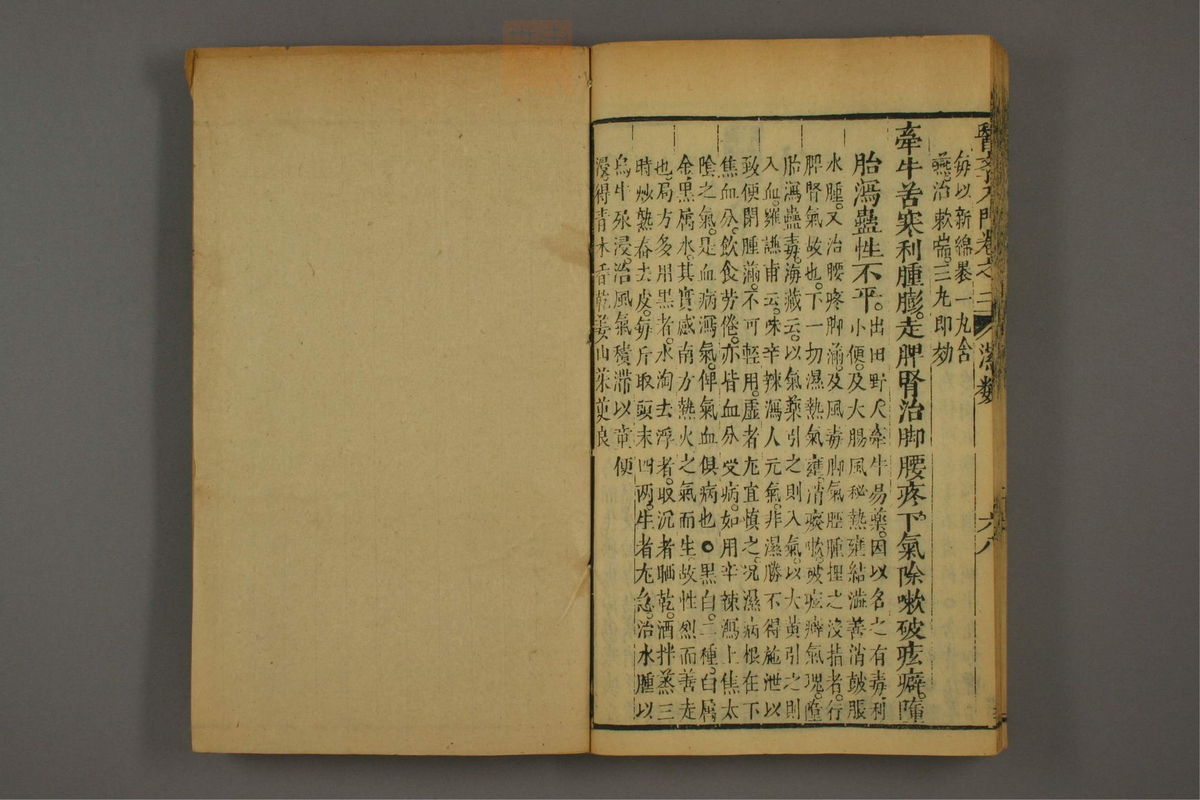 醫學入門卷之三 濕類 六八
每以新綿褁一丸含
嚥治嗽喘三丸即効
牽牛苦寒利腫膨走脾腎治脚腰疼下氣除嗽破痃癖墮
胎瀉蠱性不平出田野人牽牛易藥因以名之有毒利
小便及大腸風秘熱壅結澁善消皷脹
水腫又治腰疼脚滿及風毒脚氣脛腫捏之沒指者行
脾腎氣故也下一切濕熱氣壅消痰嗽破痃癖氣塊墮
胎瀉蠱毒海藏云以氣藥引之則入氣以大黄引之則
入血羅謙甫云味辛辣瀉人元氣非濕勝不得施泄以
致便閉腫滿不可輕用虛者尢宜慎之况濕病根在下
焦血分飲食劳倦亦皆血分受病如用辛辣瀉上焦太
陰之氣是血病瀉氣俾氣血俱病也○黒白二種白屬
金黒屬水其實感南方熱火之氣而生故性烈而善走
也局方多用黒者水淘去浮者取沉者晒乾酒拌蒸三
時炒熟舂去皮每斤取頭末四两生者尢急治水腫以
烏牛尿浸治風氣積滯以童便
浸得青木香乾姜山茱萸良